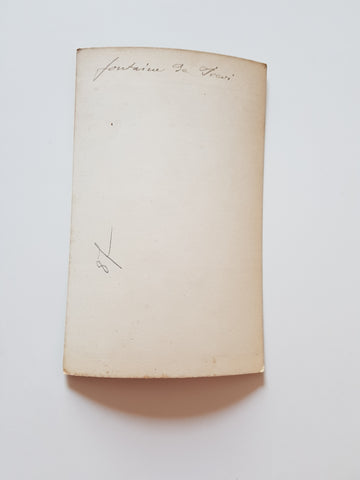 fontaine de Trevi